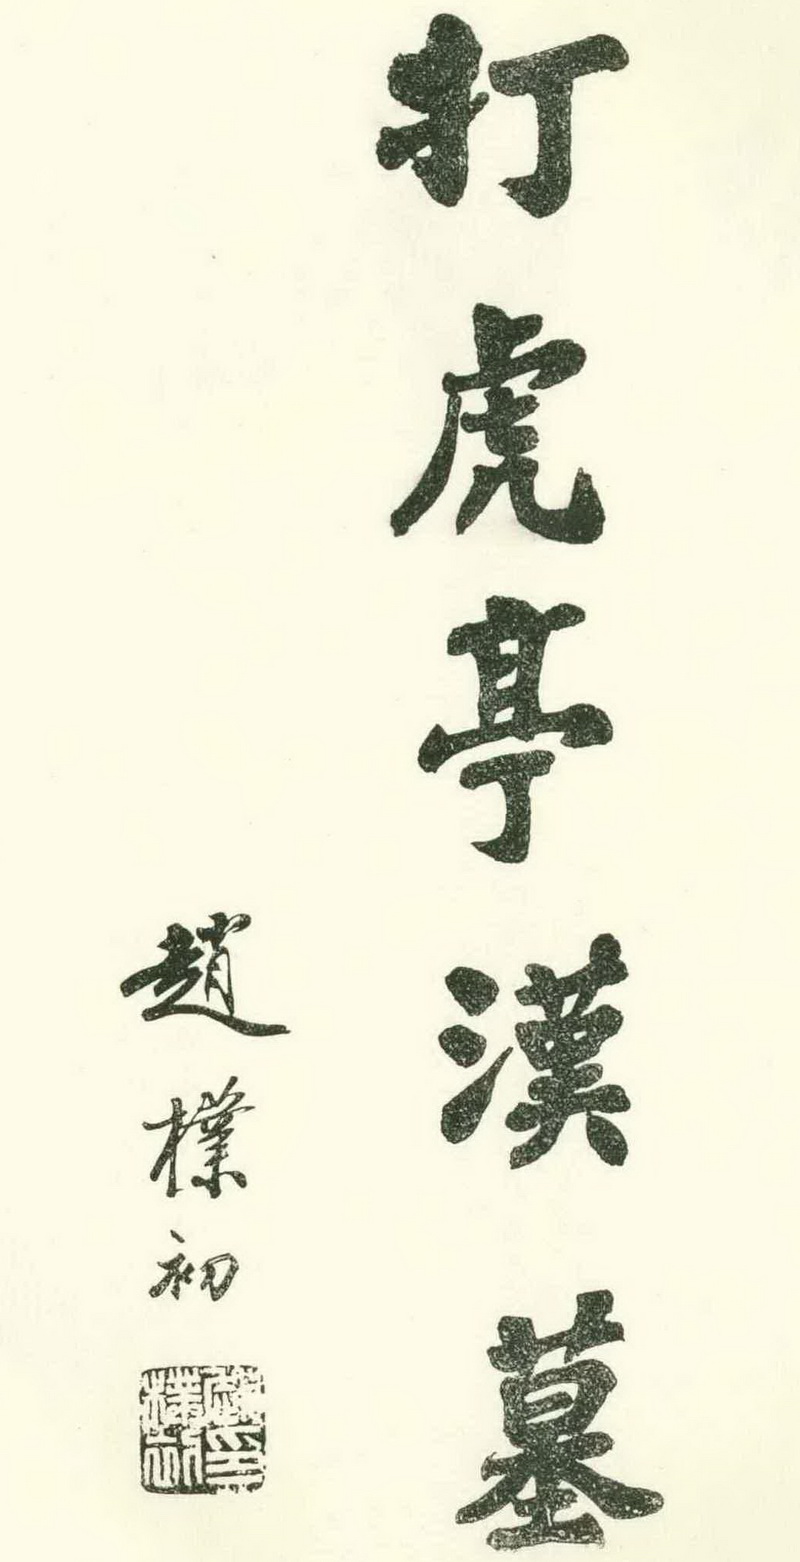 打虎亭漢墓
趙樸初